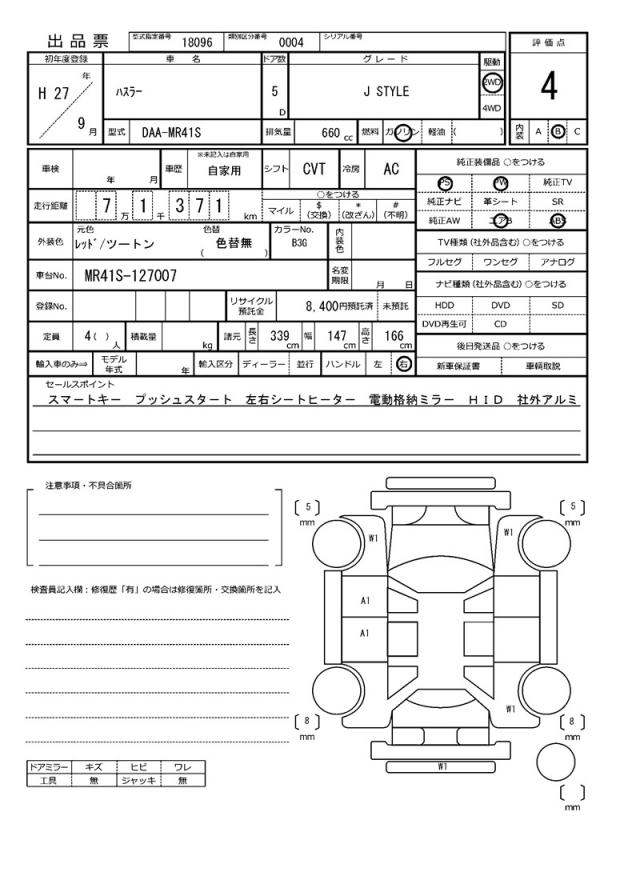 出品票 型式指定番号 18096 類別区分番号 0004 シリアル番号
評価点
4
初年度登録 車名 ドア数 グレード 駆動
H 27 年 ハスラー 5 D J STYLE 2WD
9 月 4WD
型式 DAA-MR41S 排気量 660 cc 燃料 ガソリン 軽油 ( ) 内装 A B C
車検 年 月 車歴 ※未記入は自家用 自家用 シフト CVT 冷房 AC
走行距離 7 万 1 千 3 7 1 km ○をつける
マイル $ (交換) * (改ざん) # (不明)
外装色 元色 レッド/ツートン 色替 ( 色替無 ) カラーNo. B3G 内装色
車台No. MR41S-127007 名変期限 月 日
登録No. リサイクル預託金 8,400円預託済 未預託
定員 4( ) 人 積載量 kg 諸元 長さ 339 cm 幅 147 cm 高さ 166 cm
輸入車のみ⇒ モデル年式 年 輸入区分 ディーラー 並行 ハンドル 左 右
純正装備品 ○をつける
PS PW 純正TV
純正ナビ 革シート SR
純正AW エアB ABS
TV種類(社外品含む)○をつける
フルセグ ワンセグ アナログ
ナビ種類(社外品含む)○をつける
HDD DVD SD
DVD再生可 CD
後日発送品 ○をつける
新車保証書 車輌取説
セールスポイント
スマートキー プッシュスタート 左右シートヒーター 電動格納ミラー HID 社外アルミ
注意事項・不具合箇所
検査員記入欄：修復歴「有」の場合は修復箇所・交換箇所を記入
ドアミラー キズ ヒビ ワレ
工具 無 ジャッキ 無
[ 5 ] mm
[ 5 ] mm
W1
W1
A1
A1
W1
[ 8 ] mm
[ 8 ] mm
W1
[ ] mm